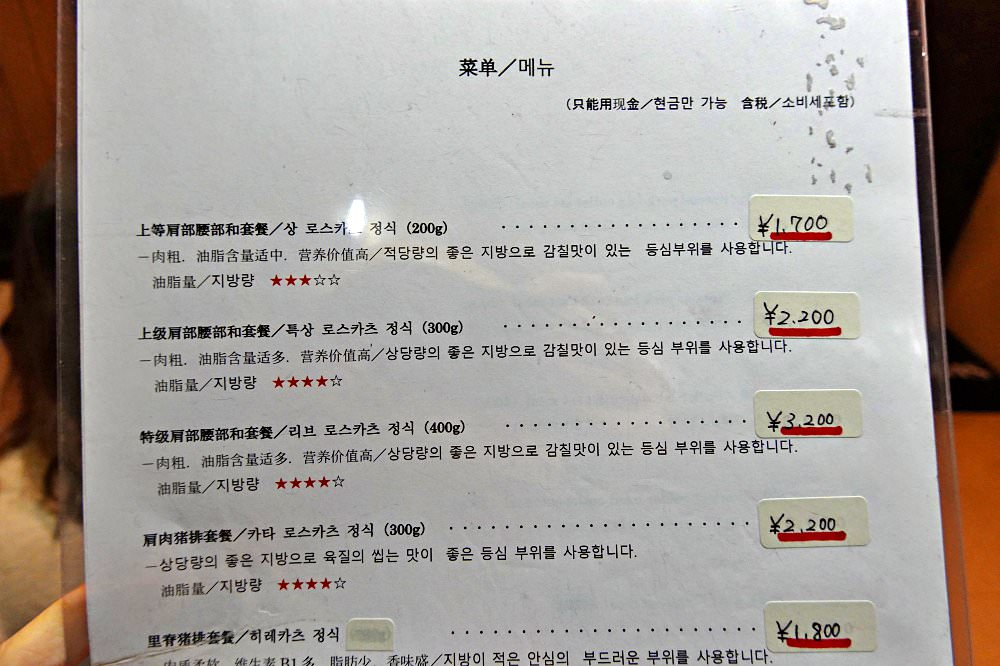 菜单／메뉴
(只能用现金／현금만 가능 含税／소비세포함)
上等肩部腰部和套餐／상 로스카츠 정식 (200g) ¥1,700
－肉粗. 油脂含量适中. 营养价值高／적당량의 좋은 지방으로 감칠맛이 있는 등심부위를 사용합니다.
油脂量／지방량 ★★★☆☆
上级肩部腰部和套餐／특상 로스카츠 정식 (300g) ¥2,200
－肉粗. 油脂含量适多. 营养价值高／상당량의 좋은 지방으로 감칠맛이 있는 등심 부위를 사용합니다.
油脂量／지방량 ★★★★☆
特级肩部腰部和套餐／리브 로스카츠 정식 (400g) ¥3,200
－肉粗. 油脂含量适多. 营养价值高／상당량의 좋은 지방으로 감칠맛이 있는 등심 부위를 사용합니다.
油脂量／지방량 ★★★★☆
肩肉猪排套餐／카타 로스카츠 정식 (300g) ¥2,200
－상당량의 좋은 지방으로 육질의 씹는 맛이 좋은 등심 부위를 사용합니다.
油脂量／지방량 ★★★★☆
里脊猪排套餐／히레카츠 정식 ¥1,800
肉质柔软. 维生素B1多. 脂肪少. 香味盛／지방이 적은 안심의 부드러운 부위를 사용합니다.